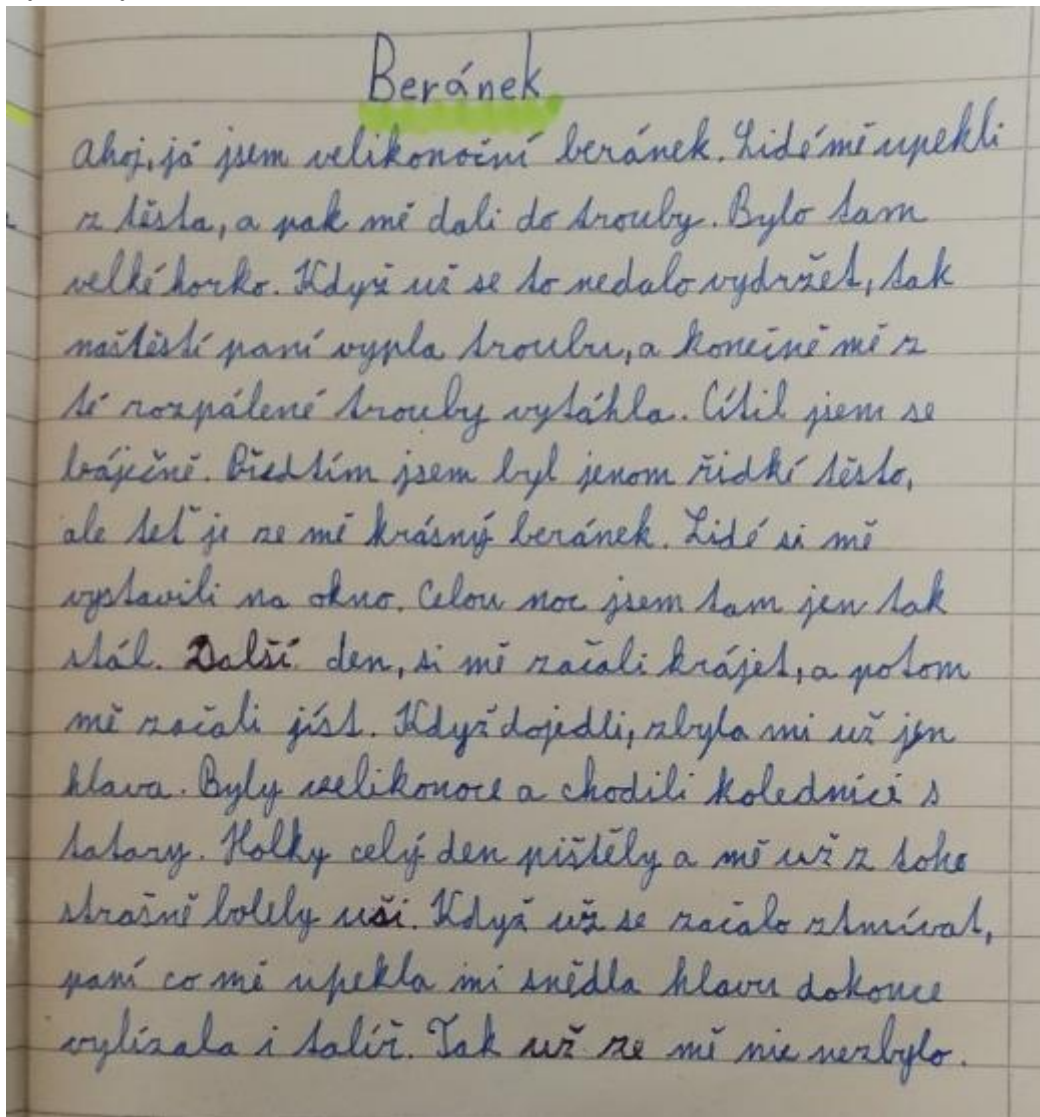 Beránek
Ahoj, já jsem velikonoční beránek. Lidé mě upekli
z těsta, a pak mě dali do trouby. Bylo tam
velké horko. Když už se to nedalo vydržet, tak
naštěstí paní vypla troubu, a konečně mě z
té rozpálené trouby vytáhla. Cítil jsem se
báječně. Předtím jsem byl jenom řidké těsto,
ale teť je ze mě krásný beránek. Lidé si mě
vystavili na okno. Celou noc jsem tam jen tak
stál. Další den, si mě začali krájet, a potom
mě začali jíst. Když dojedli, zbyla mi už jen
hlava. Byly velikonoce a chodili koledníci s
tatary. Holky celý den pištěly a mě už z toho
strašně bolely uši. Když už se začalo ztmívat,
paní co mě upekla mi snědla hlavu dokonce
vylízala i talíř. Tak už ze mě nic nezbylo.